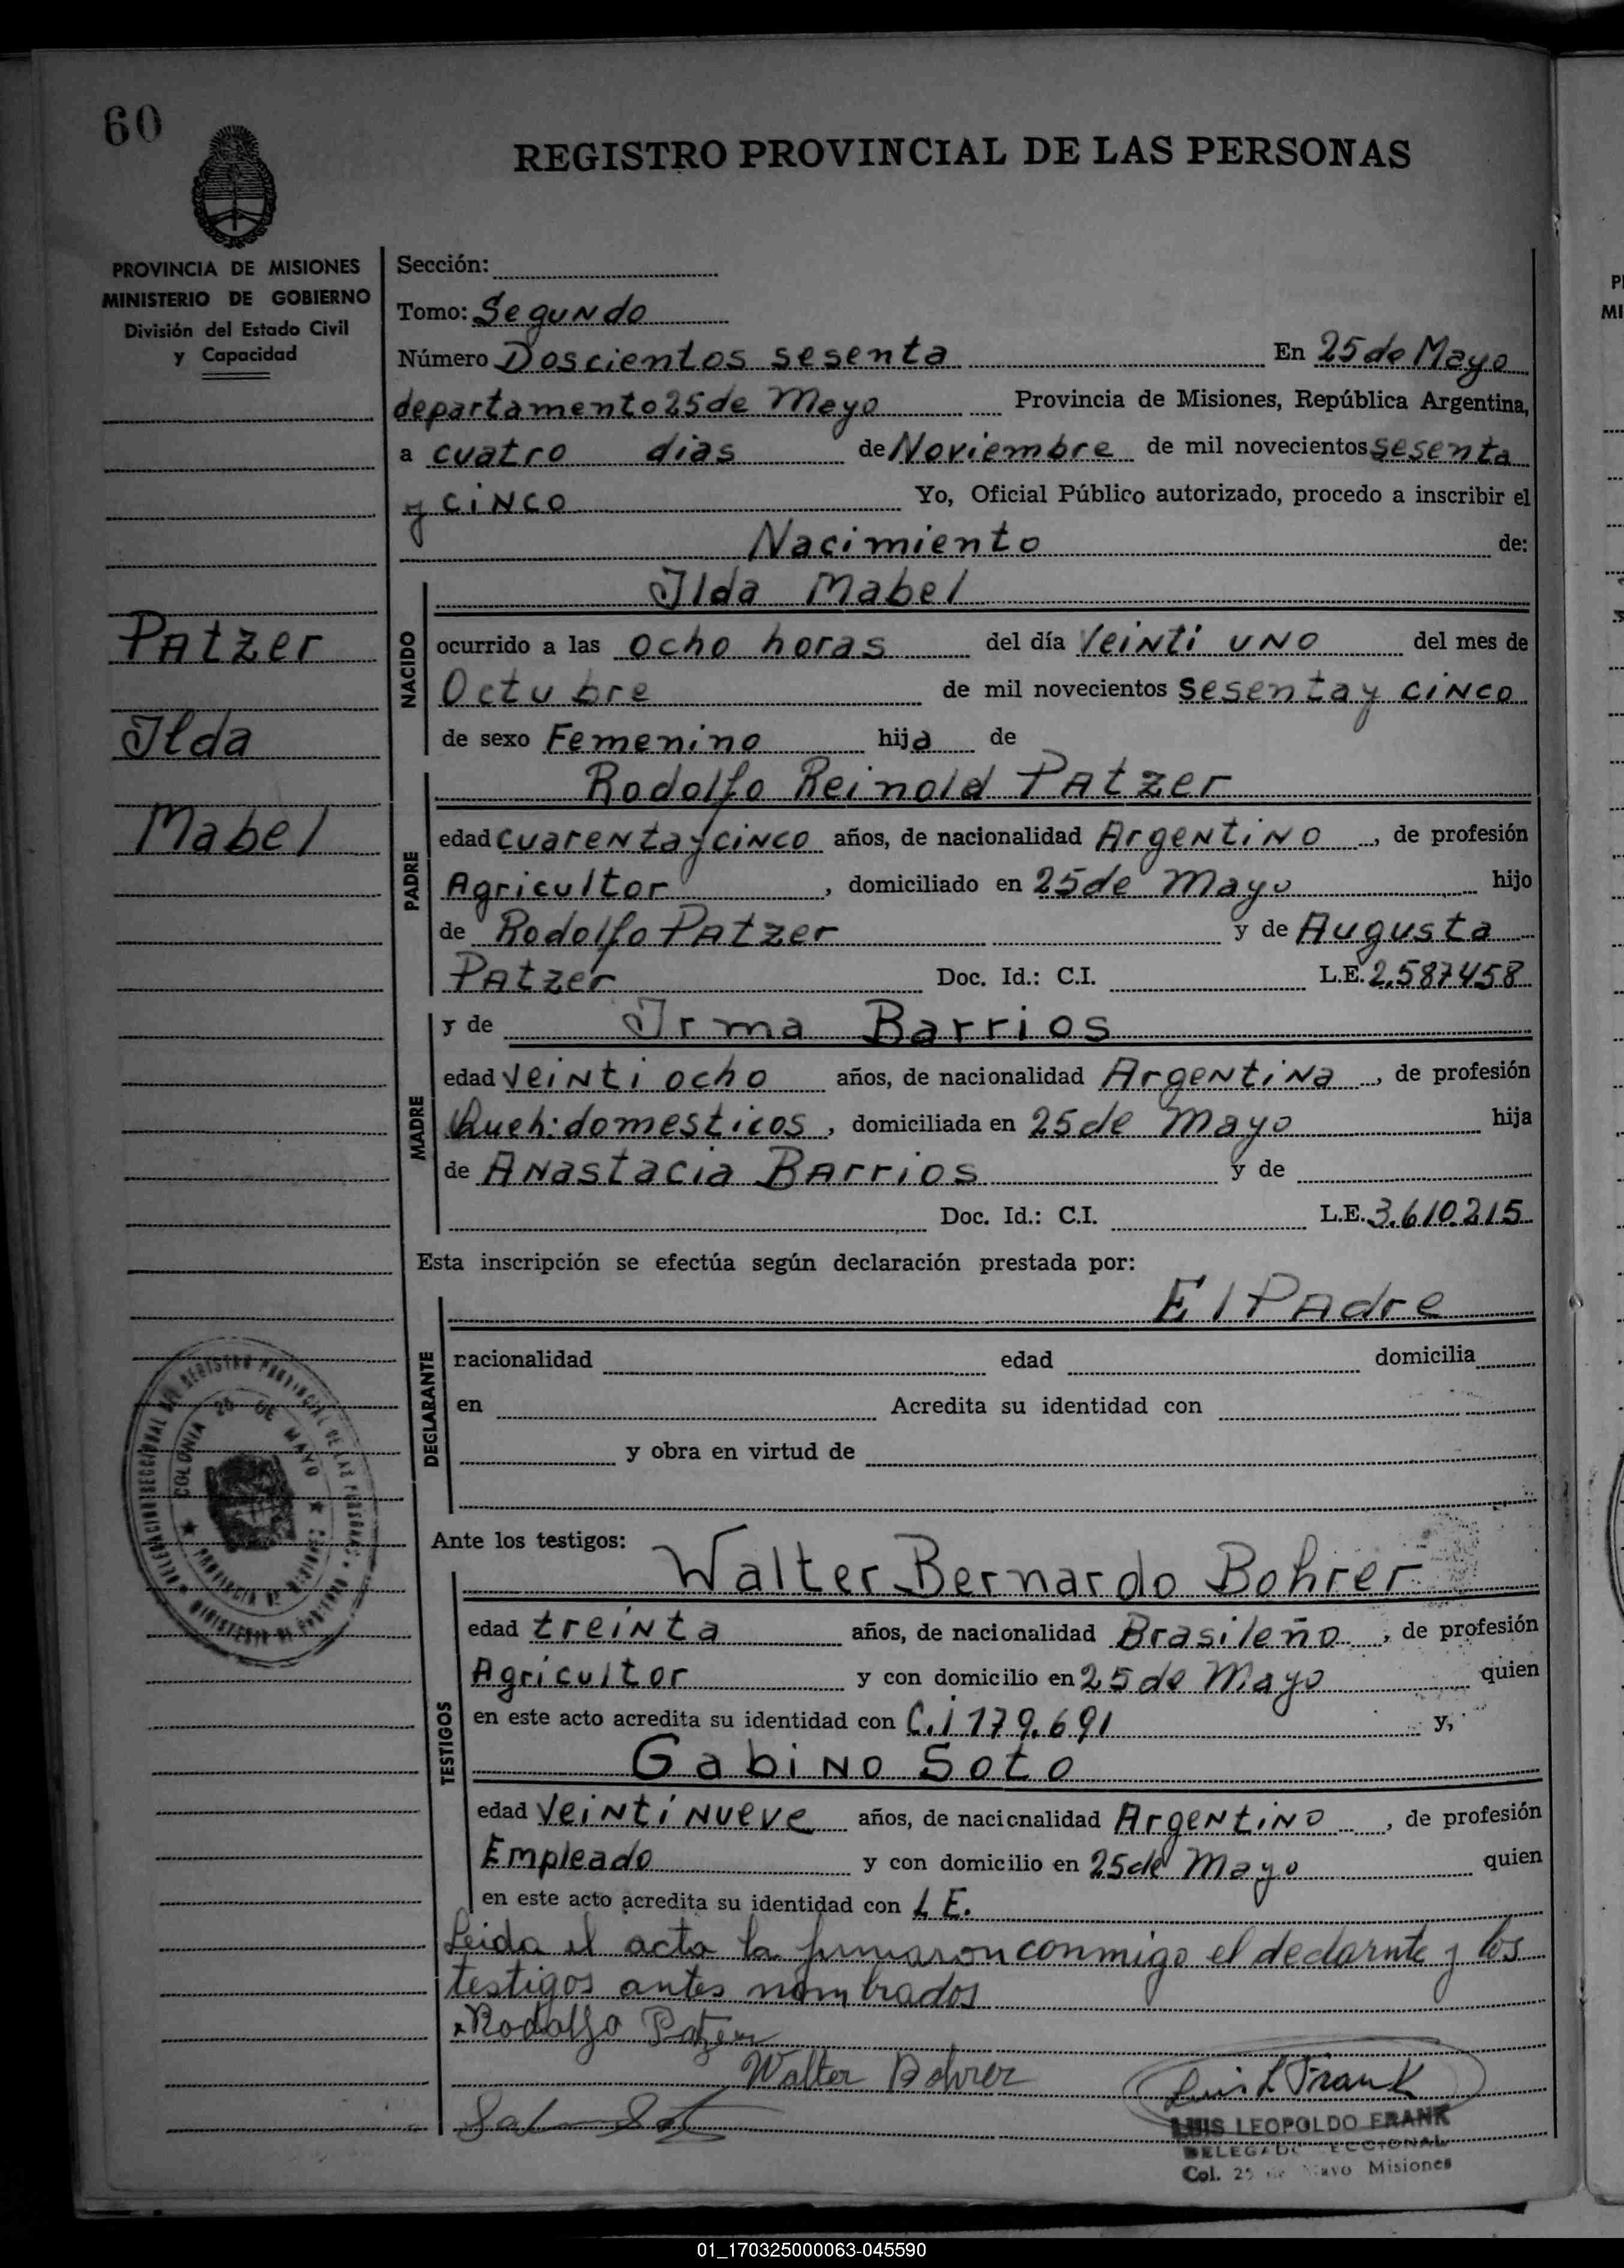 60
REGISTRO PROVINCIAL DE LAS PERSONAS
PROVINCIA DE MISIONES
MINISTERIO DE GOBIERNO
División del Estado Civil
y Capacidad
Sección:
Tomo: Segundo
Número Doscientos sesenta En 25 de Mayo
departamento 25 de Mayo Provincia de Misiones, República Argentina,
a cuatro dias de Noviembre de mil novecientos sesenta
y cinco Yo, Oficial Público autorizado, procedo a inscribir el
Nacimiento de:
Patzer
Ilda
Mabel
NACIDO
Ilda Mabel
ocurrido a las ocho horas del día Veinti uno del mes de
Octubre de mil novecientos sesenta y cinco
de sexo Femenino hija de
PADRE
Rodolfo Reinold Patzer
edad cuarenta y cinco años, de nacionalidad Argentino, de profesión
Agricultor, domiciliado en 25 de Mayo hijo
de Rodolfo Patzer y de Augusta
Patzer Doc. Id.: C.I. L.E. 2.587458
MADRE
y de Irma Barrios
edad veinti ocho años, de nacionalidad Argentina, de profesión
Queh: domesticos, domiciliada en 25 de Mayo hija
de Anastacia Barrios y de
Doc. Id.: C.I. L.E. 3.610.215
Esta inscripción se efectúa según declaración prestada por:
DECLARANTE
El Padre
nacionalidad edad domicilia
en Acredita su identidad con
y obra en virtud de
COLONIA 25 DE MAYO
Ante los testigos:
TESTIGOS
Walter Bernardo Bohrer
edad treinta años, de nacionalidad Brasileño, de profesión
Agricultor y con domicilio en 25 de Mayo quien
en este acto acredita su identidad con C.i 179.691 y,
Gabino Soto
edad Veinti nueve años, de nacionalidad Argentino, de profesión
Empleado y con domicilio en 25 de Mayo quien
en este acto acredita su identidad con L E.
Leida el acta la firmaron conmigo el declarnte y los
testigos antes nombrados
x Rodolfo Patzer
Walter Bohrer
Luis L Frank
LUIS LEOPOLDO FRANK
DELEGADO SECCIONAL
Col. 25 de Mayo Misiones
01_170325000063-045590